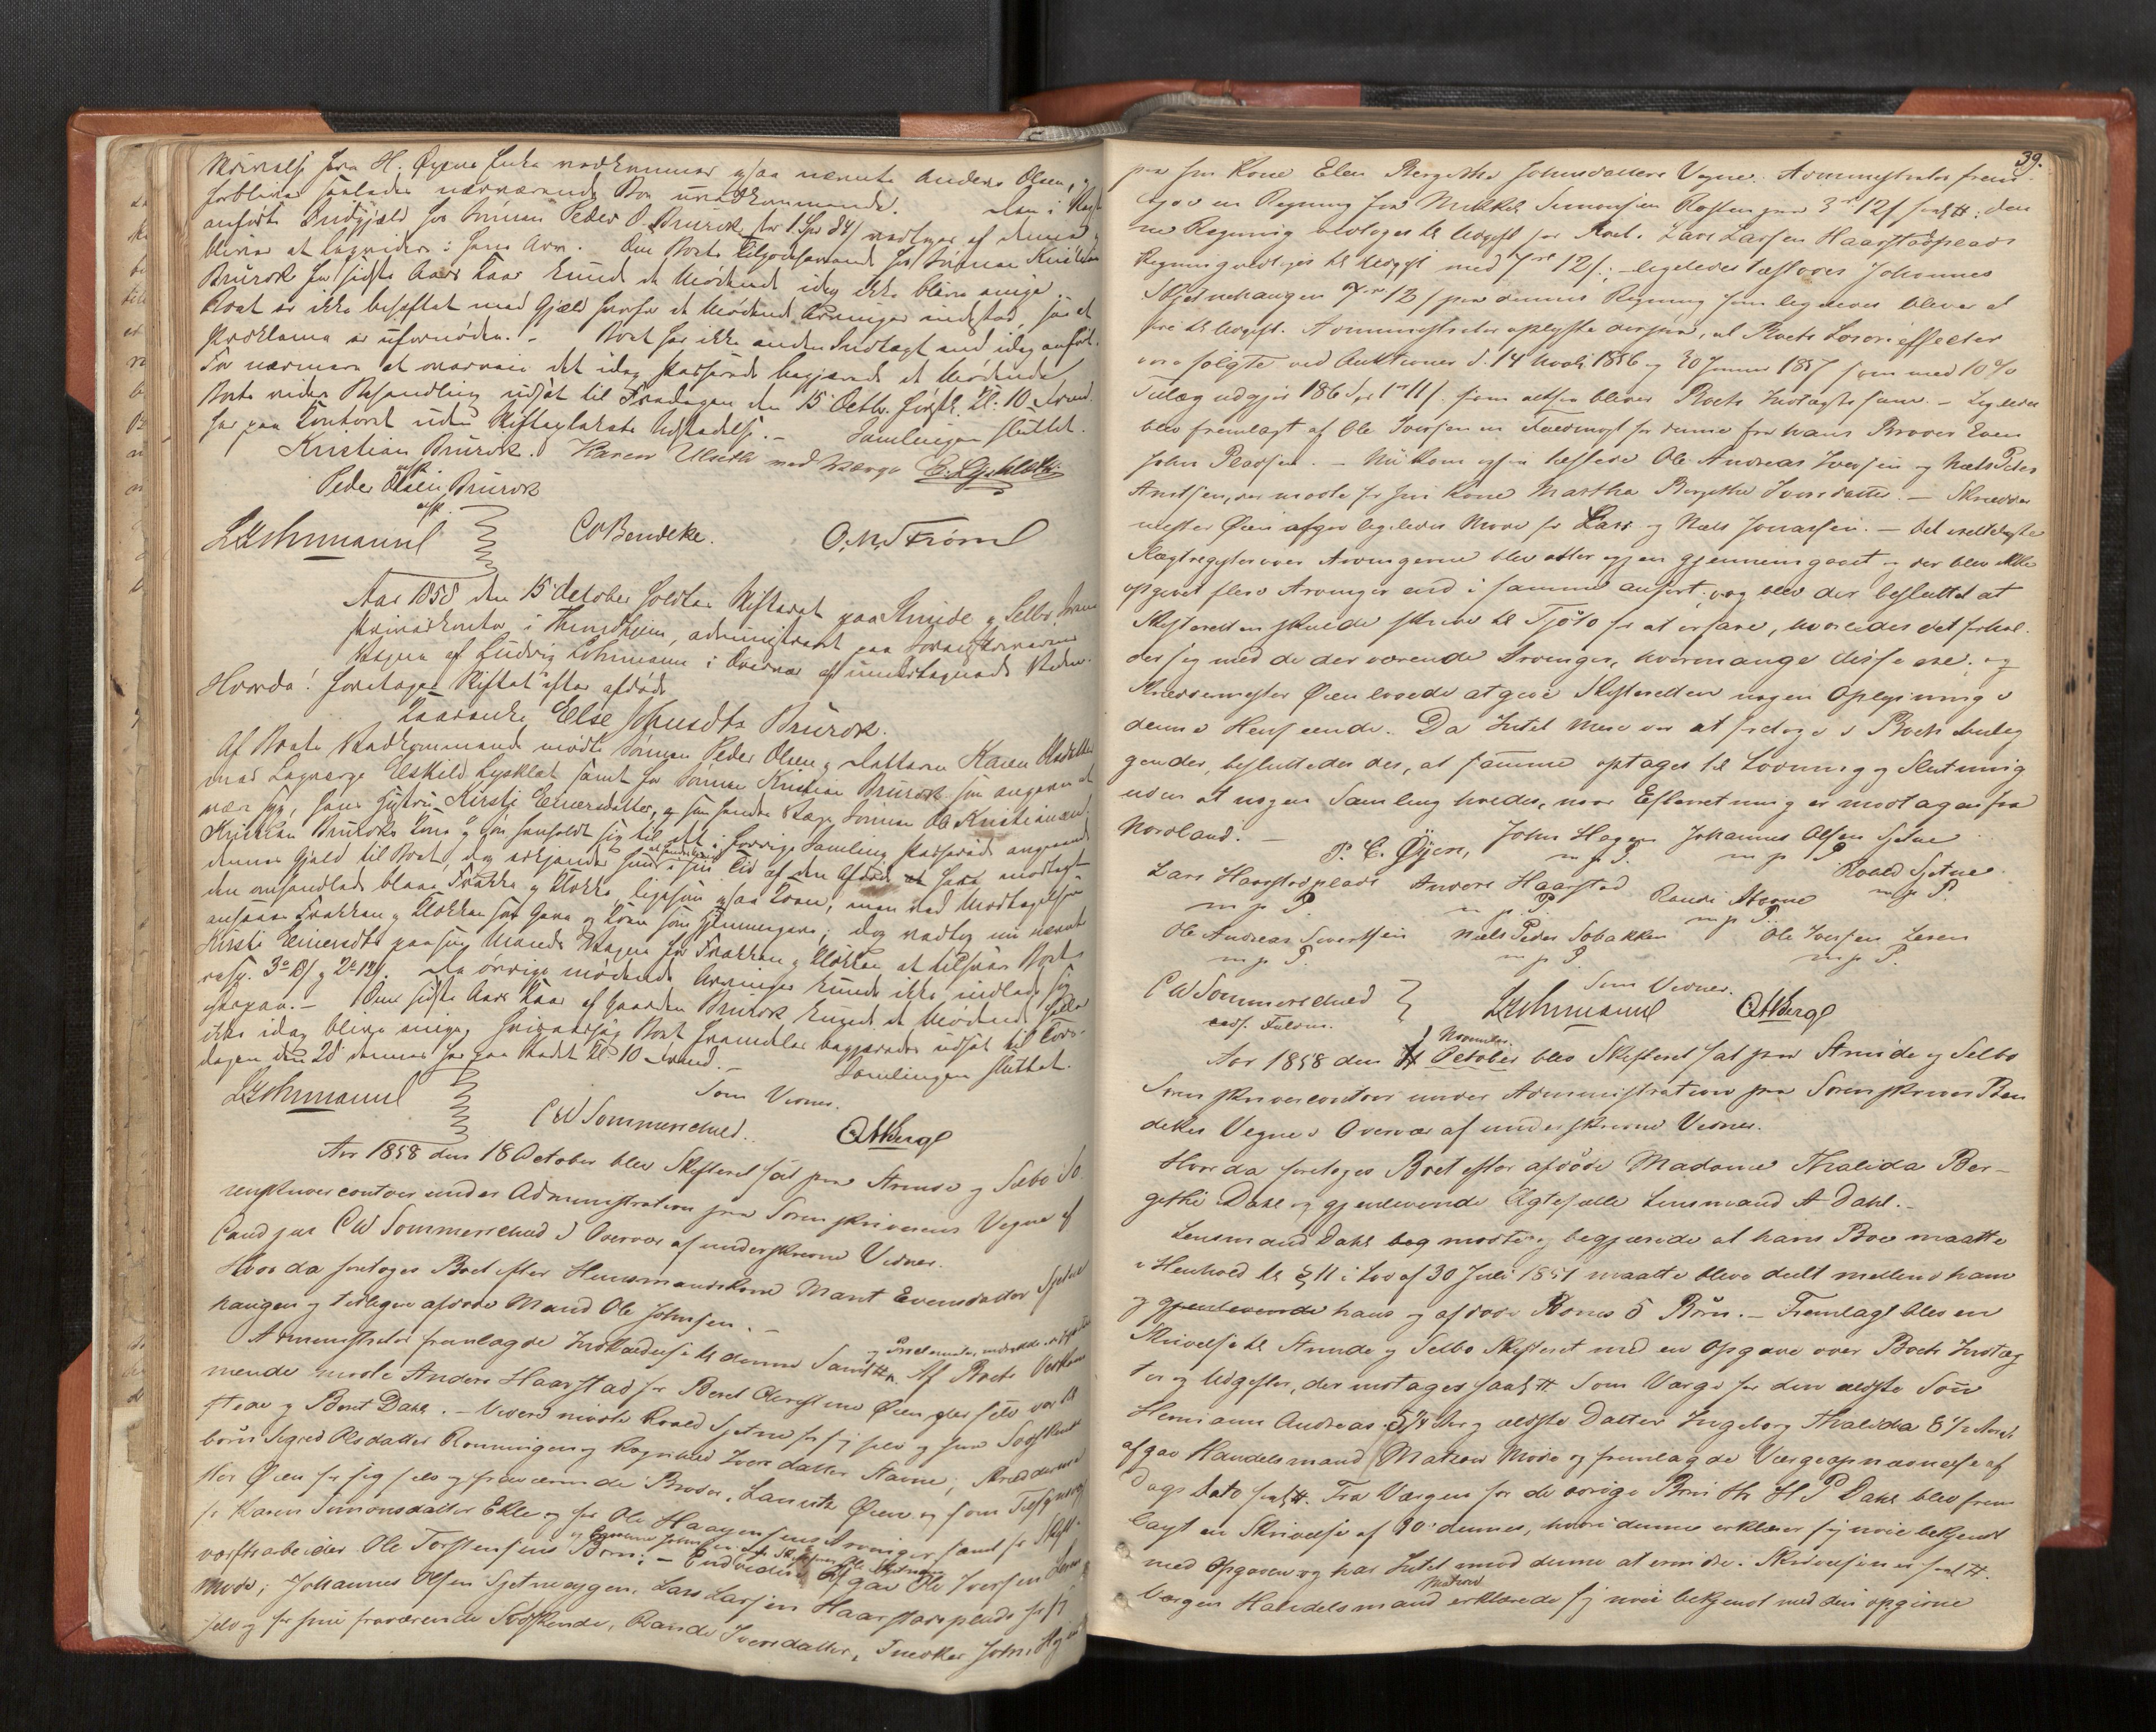 H. Øyens Enke vedkommer ogsaa nævnte Anders Olsen,
forbliver saaledes nærværende Bo uvedkommende. Den i
anførte Indgjæld hos Sønnen Peder O. Brurok for 1 Spd 84 vedtoges af denne
bliver at liqvidere i hans Arv. Den Boets Tilgodehavende hos Sønnen Kristian
Brurok for sidste Aars Kaar kunde de Mødende idag ikke blive enige
Boet er ikke beheftet med Gjæld hvorfor de Mødende Arvinger vedstod, saa at
Proklama er ufornøden. - Boet har ikke anden Indtægt end idag anført.
For nærmere at det idag Passerede begjærede de Mødende
Boets videre Behandling udsat til Fredagen den 15 Octbr. førstk. Kl. 10 Formd.
her paa Kontoret uden Skifteplakats Udstedelse. - Samlingen sluttet.
Kristian Brurok. Karen Olsdtr med Værge
Peder Olsen Brurok
L Lehmann CVBendeke. O. M. Strøm
Aar 1858 den 15 October holdtes Skifteret paa Strinde og Selbo Soren
skriverkontor i Throndhjem, administreret paa Sorenskriverens
Vegne af Ludvig Lehmann i Overvær af undertegnede Vidner.
Hvorda! foretages Skiftet efter afdøde
Kaarenke Else Johnsdtr Brurok.
Af Boets Vedkommende mødte Sønnen Peder Olsen og Datteren Karen Olsdatter
med Lagværge Eskild Lysklet samt for Sønnen Kristian Brurok som angaves at
være syg, hans Hustru Kirsti Einersdatter, og hendes Søn Ole Kristiansen;
Kristian Bruroks Kone og Søn henholdt sig til det i forrige Samling passerede angaaende
dennes Gjæld til Boet, dog erkjender hun i sin Tid af den Afdøde at have modtaget
den omhandlede blaae Frakke og Klokke, ligesom ogsaa Koen, men ved Modtagelsen
ansaaes Frakken og Klokken som Gave og Koen som Hjemmegave; dog vedtog nu nævnte
Kirsti Einersdtr paa sin Mands Vegne for Frakken og Klokken at tilsvare Boet
resp. 3 og 2. De øvrige mødende Arvinger kunde ikke indlade sig
derpaa. - Om sidste Aars Kaar af Gaarden Brurok kunde de Mødende heller
ikke idag blive enige, hvorefter Boet fremdeles begjæredes udsat til Tors-
dagen den 28 dennes her paa Stedet Kl. 10 Formd. - Samlingen sluttet.
L Lehmann Som Vidner.
C W Sommerschield. O M Bergh
Aar 1858 den 18 October blev Skifteret sat paa Strinde og Selbo So
renskrivercontoir under Administration paa Sorenskriverens Vegne af
Cand jur C W Sommerschield i Overvær af underskrevne Vidner.
Hvorda foretoges Boet efter Huusmandskone Marit Evensdatter Sjetne
haugen og tidligere afdøde Mand Ole Johnsen. -
Administrator fremlagde Indkaldelse til denne Samling Af Boets Vedkom
mende mødte Anders Haarstad for Beret Olava Øien, for selv var
Stene og Beret Dahl. - Videre mødte Roald Sjetne for sig selv og sine Sødskende
børn Sigrid Olsdatter Rønningen og Ragnhild Iversdatter Stavne; Skrædderme
ster Øien for sig selv og fraværende Broder, Laurits Øien og som Tilsynsværge
for Karen Simonsdatter Ekle og for Ole Haagensens Arvinger samt for Skibs
værftsarbeider Ole Torstensens Børn; - Endvidere afgav Ole Iversen Leren
Møde; Johannes Olsen Sjetneeggen, Lars Larsen Haarstadplads for sig
selv og for sine fraværende Sødskende, Randi Iversdatter, Snedker John Hogen
39.
paa sin Kone Elen Bergitha Johnsdatters Vegne. Administrator frem-
gav en Regning fra Mikkel Simonsen Rosten paa 3 12 ; den
ne Regning udtoges til Udgift for Boet. Lars Larsen Haarstadplads
Regning vedtoges til Udgift med 7 12; - ligeledes leverede Johannes
Sjetnehaugen 7 12 paa dennes Regning som ligeledes bleve at
føre til Udgift. Administrator oplyste derpaa, at Boets Løsøreeffecter
vare solgte ved Auktioner d. 14 Novbr 1856 og 30 Januar 1857 som med 10%
Tillæg udgjør 186 Spd 1 11 som altsaa bliver Boets Indtægtssum. - Ligeledes
blev fremlagt af Ole Iversen en Fuldmagt for denne fra hans Broder Even
John Pedersen. - Nu kom ogsaa tilstede Ole Andreas Iversen og Niels Peder
Arntsen, der mødte for sin Kone Martha Bergitha Iversdatter. - Skrædder
mester Øien afgav ligeledes Møde for Lars og Niels Jonassen. - Det vedlagte
Slægtregister over Arvingerne blev atter igjen gjennemgaaet og der blev ikke
opgivet flere Arvinger end i samme anført, og blev der besluttet at
Skifteretten skulde skrive til Tjøtø for at erfare, hvorledes det forhol-
der sig med de derværende Arvinger, hvormange disse ere, og
Skræddermester Øien lovede at give Skifteretten nogen Oplysning i
denne Henseende. Da Intet mere var at foretage i Boets Anlig
gender, besluttedes der, at samme optages til Lodning og Slutning
uden at nogen Samling holdes, naar Efterretning er modtagen fra
Nordland. - P. C. Øyen, John Hogen Johannes Olsen Sjetne
m p P. m p P
Lars Haarstadplads Anders Haarstad Randi Stavne Roald Sjetne
m p P. m p P. m p P. m p P.
Ole Andreas Ivertsen Niels Peder Sobakken Ole Iversen Leren
m p P. m p P. m p P.
C W Sommerschield Som Vidner.
L Lehmann O M Bergh
Aar 1858 den 1 November October blev Skifteret sat paa Strinde og Selbo
Sorenskrivercontoir under Administration paa Sorenskriver Ben
dekes Vegne i Overvær af underskrevne Vidner.
Hvorda foretoges Boet efter afdøde Madame Thalida Ber-
githe Dahl og gjenlevende Ægtefælle Lensmand A Dahl. -
Lensmand Dahl beg mødte og begjærede at hans Boe maatte
i Henhold til § 11 i Lov af 30 Juli 1851 maatte blive deelt mellem ham
og gjenlevende hans og afdøde Kones 5 Børn. - Fremlagt blev en
Skrivelse til Strinde og Selbo Skifteret med en Opgave over Boets Indtæg
ter og Udgifter, der modtages Som Værge for den ældste Søn
Hermann Andreas 5 1/4 Aar og ældste Datter Ingeborg Thalida 8 1/2 Aar
afgav Handelsmand Matzow Møde og fremlagde Værgeopnævnelse af
Dags Dato. Fra Værgen for de øvrige Børn Hr H P Dahl blev frem
lagt en Skrivelse af 30 dennes, hvori denne erklærer sig nøie bekjendt
med Opgaven og har Intet mod denne at erindre. Skrivelsen er
Værgen Handelsmand Matzow erklærede sig nøie bekjendt med den opgivne